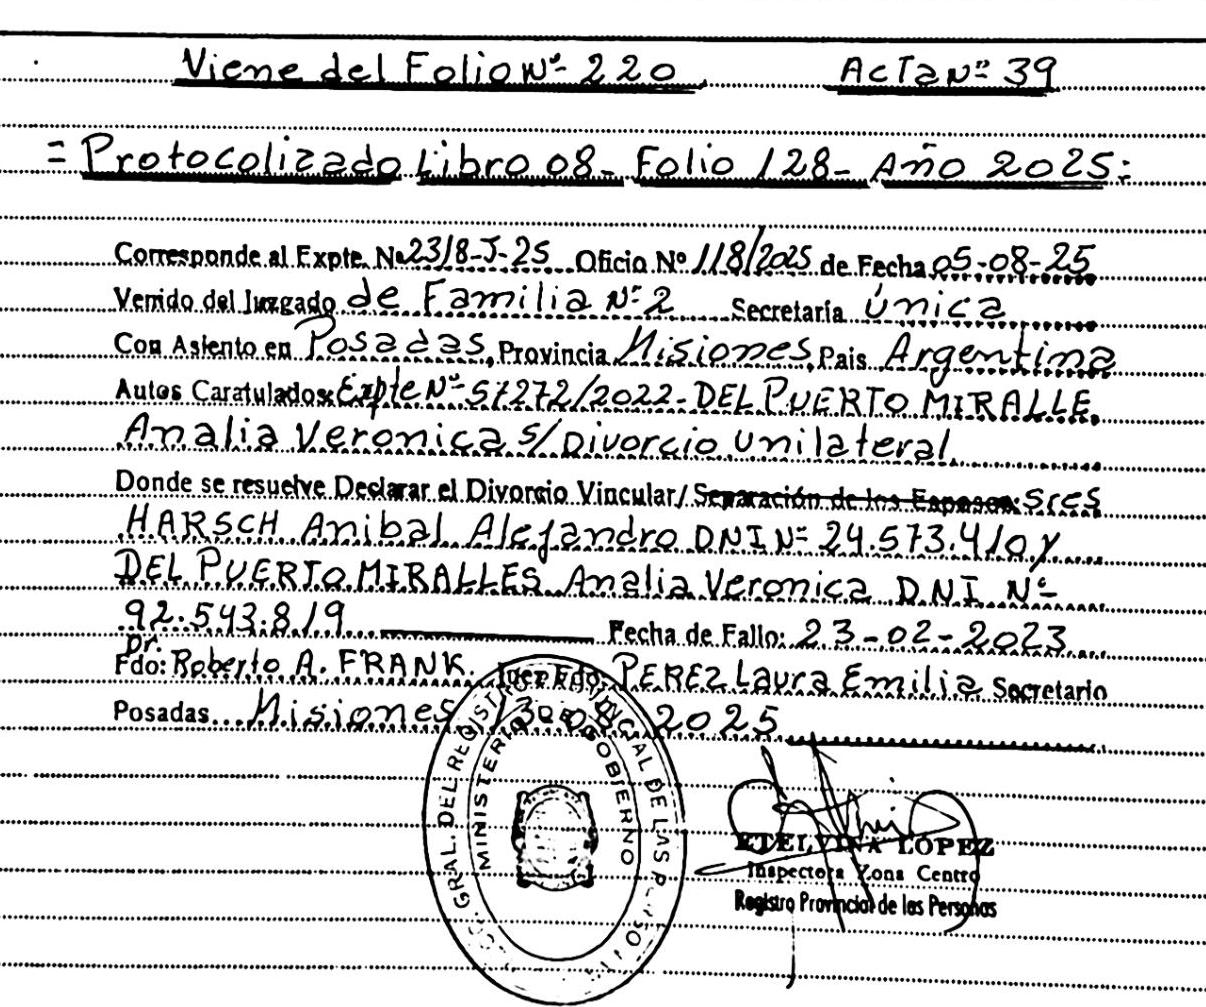 Viene del Folio Nº 220. Acta Nº 39
= Protocolizado Libro 08- Folio 128- Año 2025:
Corresponde al Expte. Nº 2318-J-25 Oficio Nº 118/2025 de Fecha 05-08-25
Venido del Juzgado de Familia Nº 2 Secretaría única
Con Asiento en Posadas, Provincia Misiones, Pais Argentina
Autos Caratulados: Expte Nº 57272/2022- DEL PUERTO MIRALLE,
Analia Veronica s/ Divorcio Unilateral
Donde se resuelve Declarar el Divorcio Vincular/ Separación de los Esposos: Sres
HARSCH Anibal Alejandro DNI Nº 24.573.410 y
DEL PUERTO MIRALLES Analia Veronica DNI Nº
92.543.819 Fecha de Fallo: 23-02-2023
Dr.
Fdo: Roberto A. FRANK. Juez Fdo: PEREZ Laura Emilia Secretario
Posadas Misiones 13 08 2025
GRAL. DEL REGISTRO PROVINCIAL DE LAS
MINISTERIO DE GOBIERNO
ETELVINA LÓPEZ
Inspectora Zona Centro
Registro Provincial de las Personas